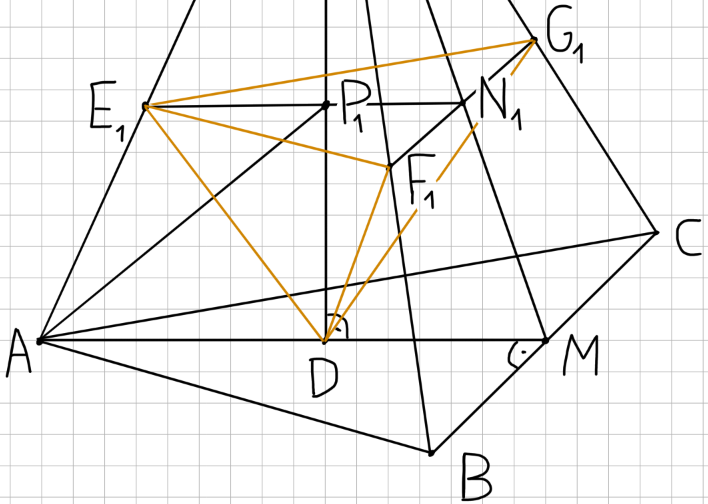 G₁
E₁
P₁
N₁
F₁
C
A
D
M
B